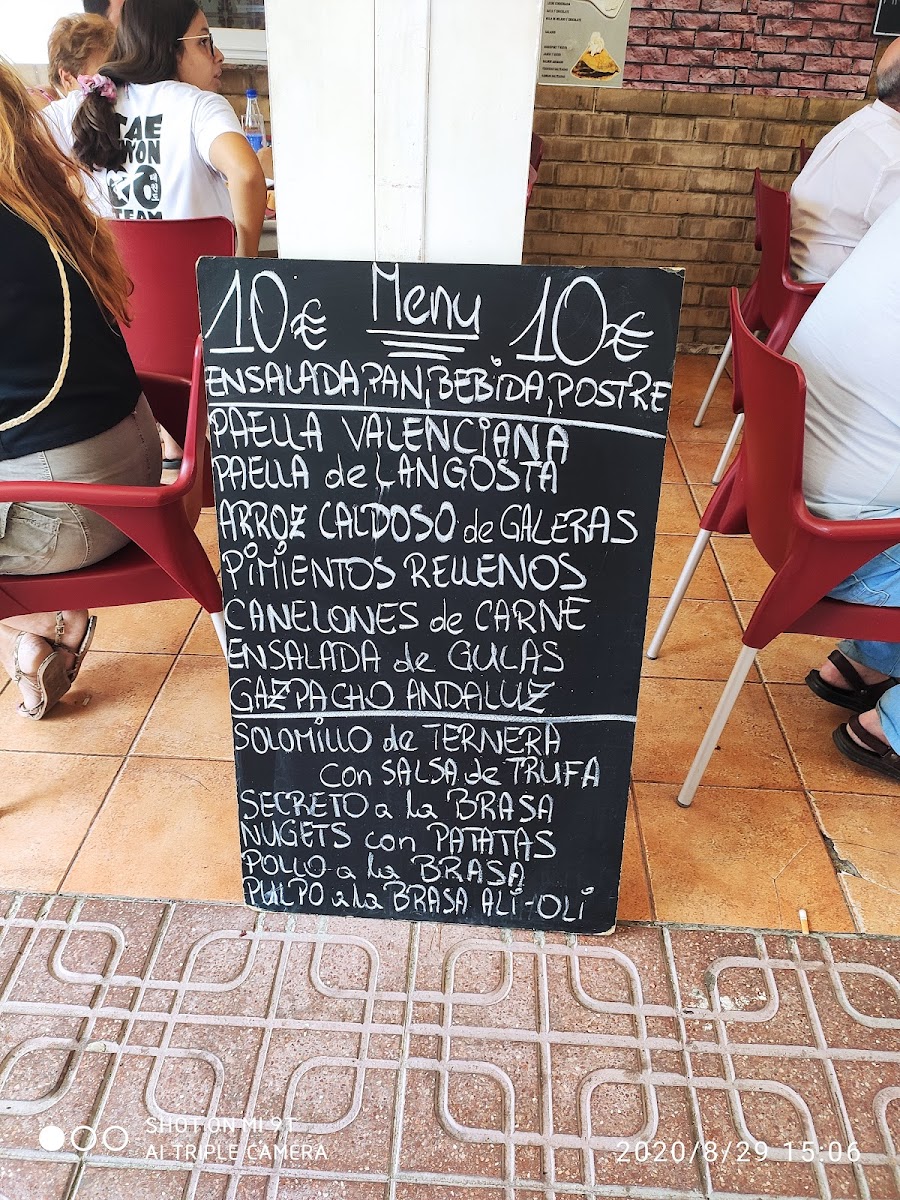 TEAM
10€ Menu 10€
ENSALADA, PAN, BEBIDA, POSTRE
PAELLA VALENCIANA
PAELLA de LANGOSTA
ARROZ CALDOSO de GALERAS
PIMIENTOS RELLENOS
CANELONES de CARNE
ENSALADA de GULAS
GAZPACHO ANDALUZ
SOLOMILLO de TERNERA
con SALSA de TRUFA
SECRETO a la BRASA
NUGETS con PATATAS
POLLO a la BRASA
PULPO a la BRASA ALI-OLI
SHOT ON MI 9T
AI TRIPLE CAMERA
2020/8/29 15:06